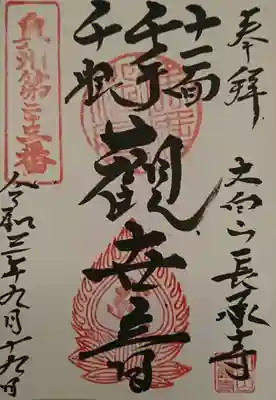 奉拝
大白山長承寺
十一面
千手
千眼
觀世音
奥州第二十三番
令和三年九月十九日